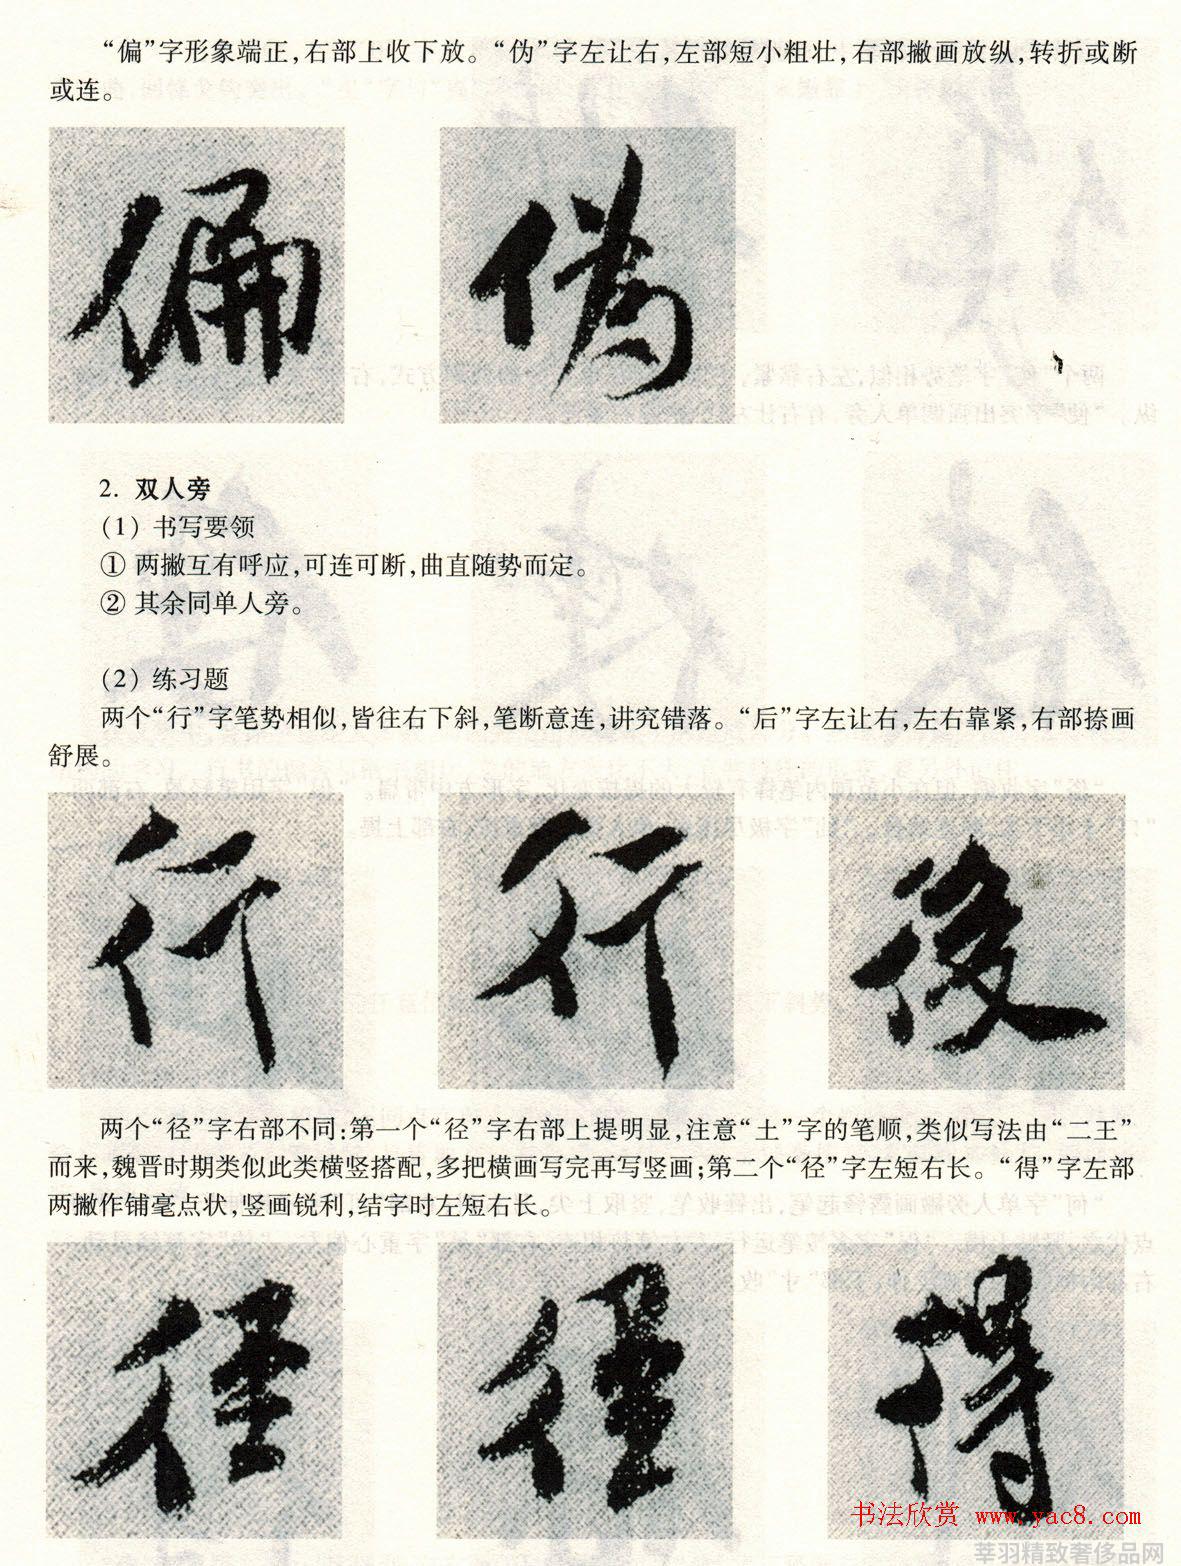 “偏”字形象端正，右部上收下放。“伪”字左让右，左部短小粗壮，右部撇画放纵，转折或断
或连。
偏 偽
2. 双人旁
（1）书写要领
① 两撇互有呼应，可连可断，曲直随势而定。
② 其余同单人旁。
（2）练习题
两个“行”字笔势相似，皆往右下斜，笔断意连，讲究错落。“后”字左让右，左右靠紧，右部捺画
舒展。
行 行 後
两个“径”字右部不同：第一个“径”字右部上提明显，注意“土”字的笔顺，类似写法由“二王”
而来，魏晋时期类似此类横竖搭配，多把横画写完再写竖画；第二个“径”字左短右长。“得”字左部
两撇作铺毫点状，竖画锐利，结字时左短右长。
径 径 得
书法欣赏 www.yac8.com
莘羽精致奢侈品网